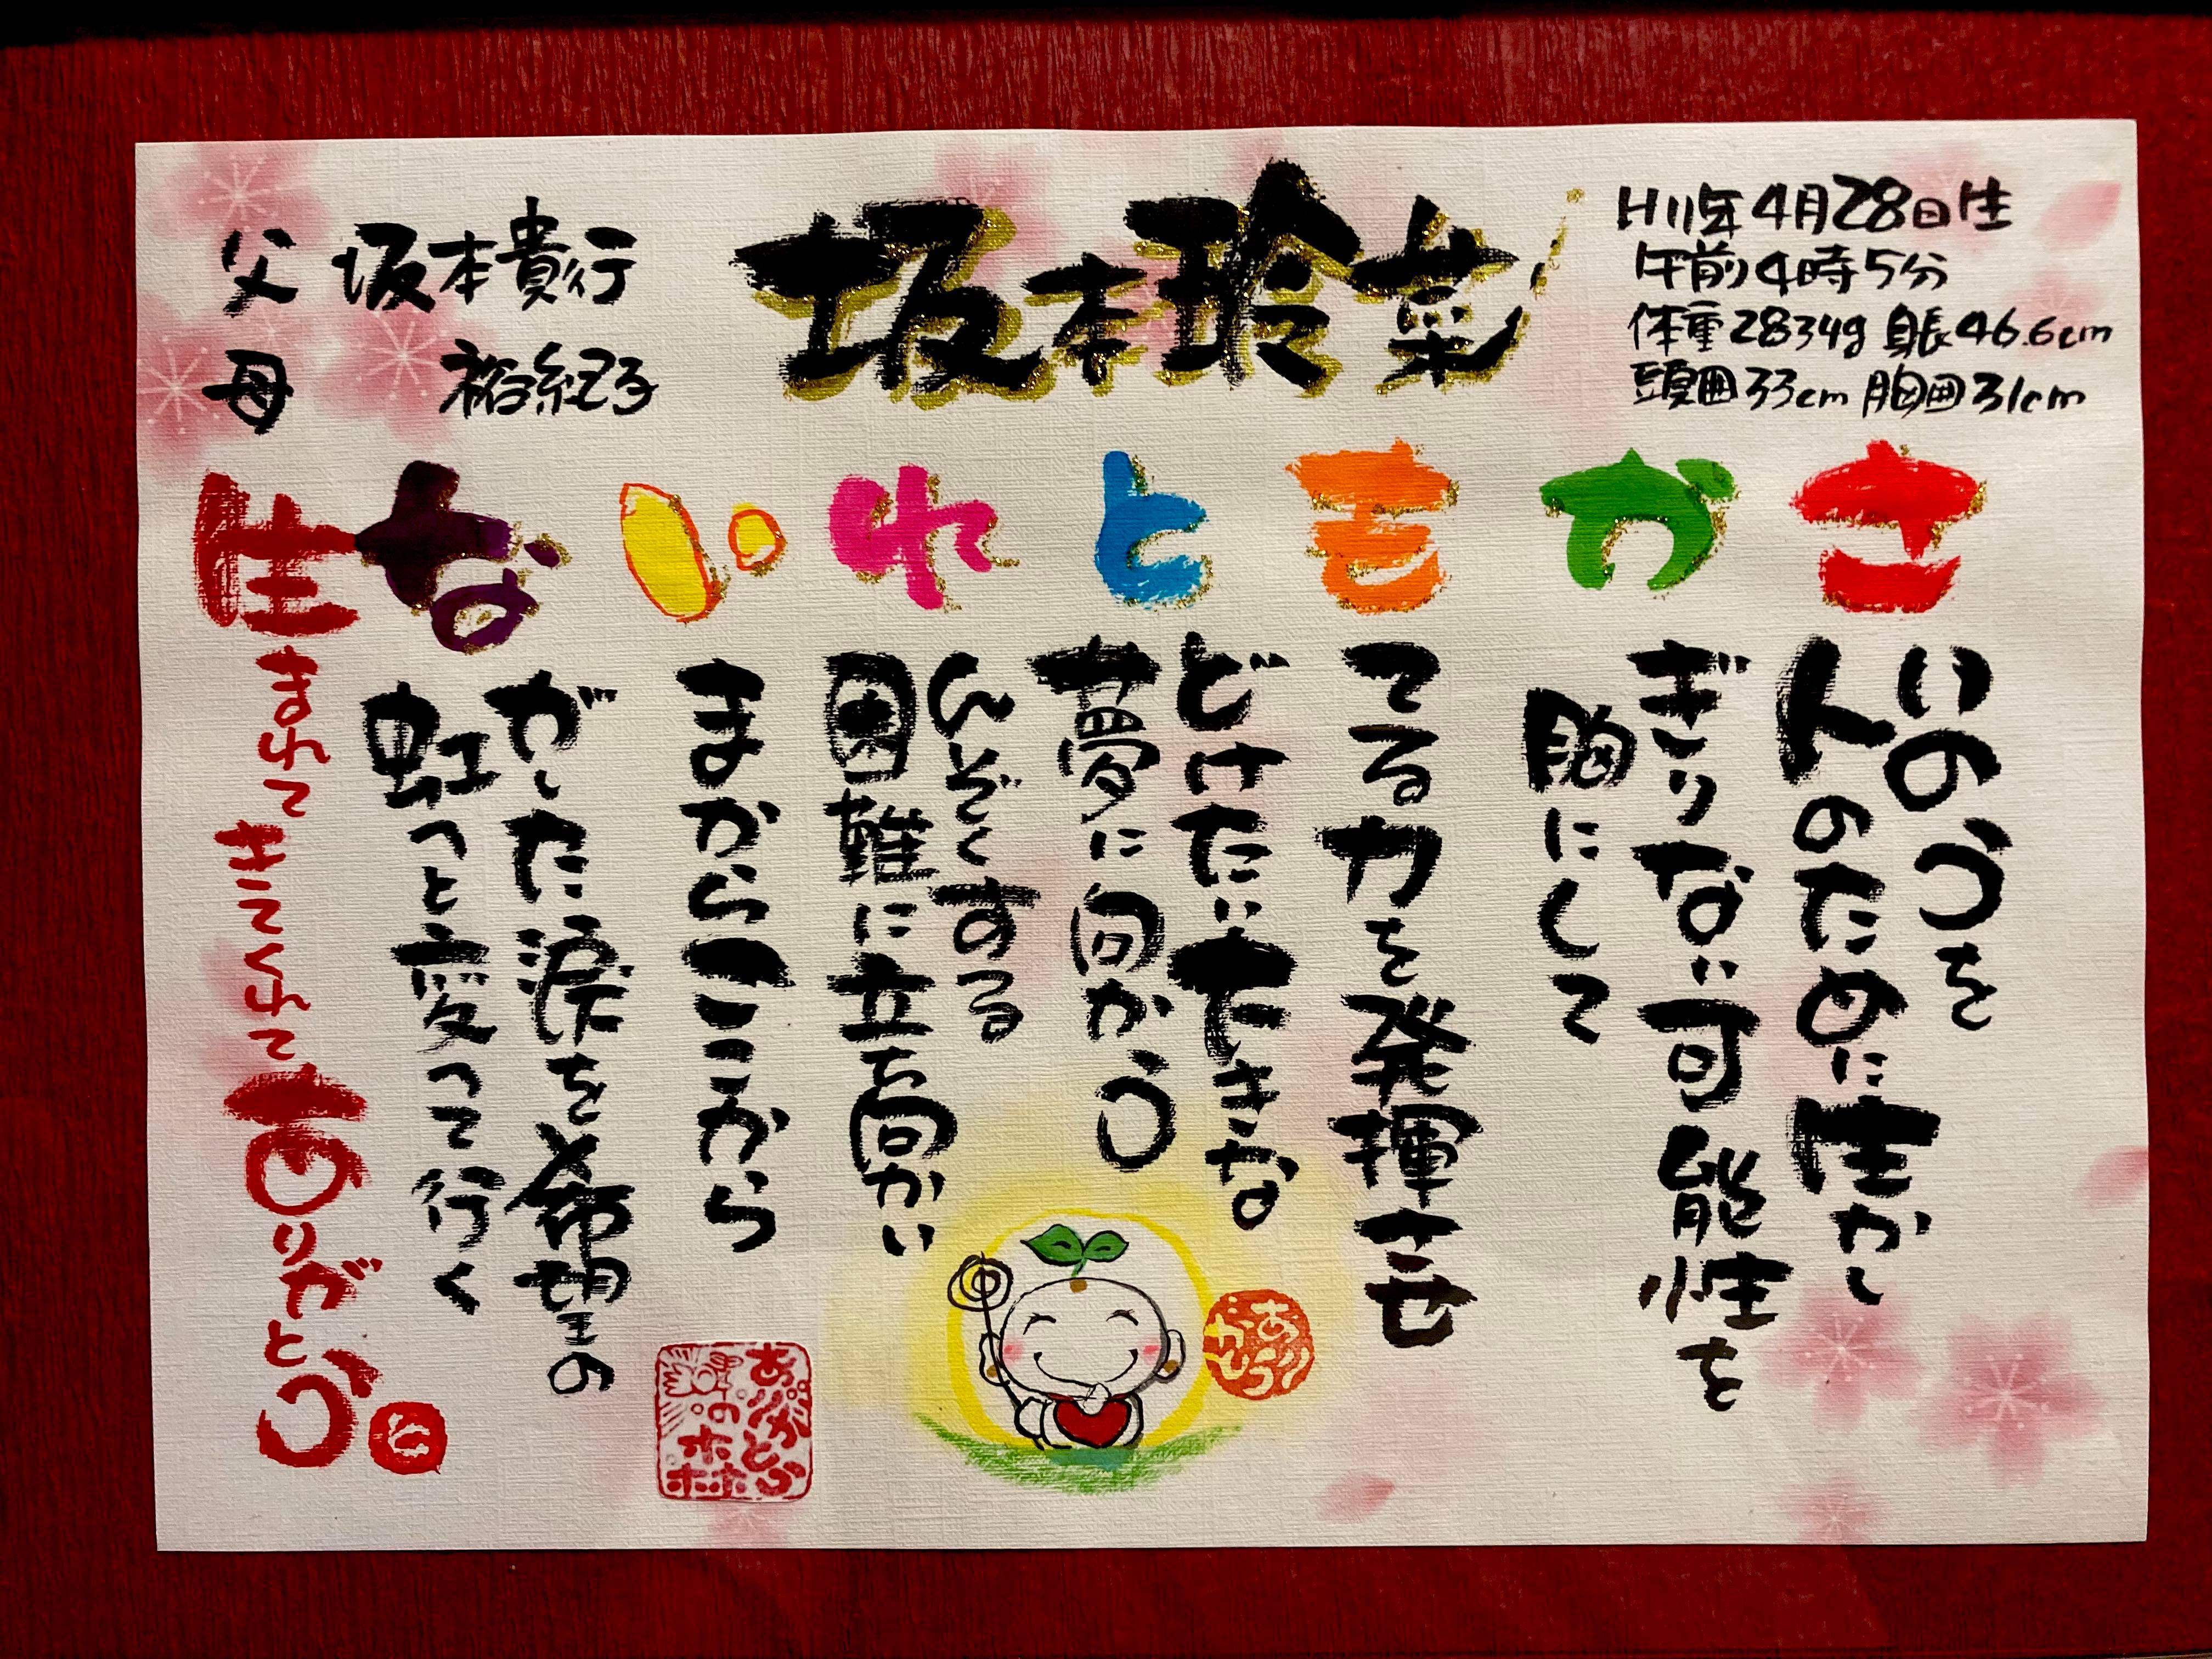 坂本玲菜
H11年4月28日生
午前4時5分
体重2834g 身長46.6cm
頭囲33cm 胸囲31cm
父 坂本貴行
母 裕紀子
さいのうを
人のために生かし
かぎりない可能性を
胸にして
もてる力を発揮させ
とどけたい大きな
夢に向かう
れんぞくする
困難に立ち向かい
いまからここから
ながした涙を希望の
虹へと変って行く
生まれてきてくれてありがとう